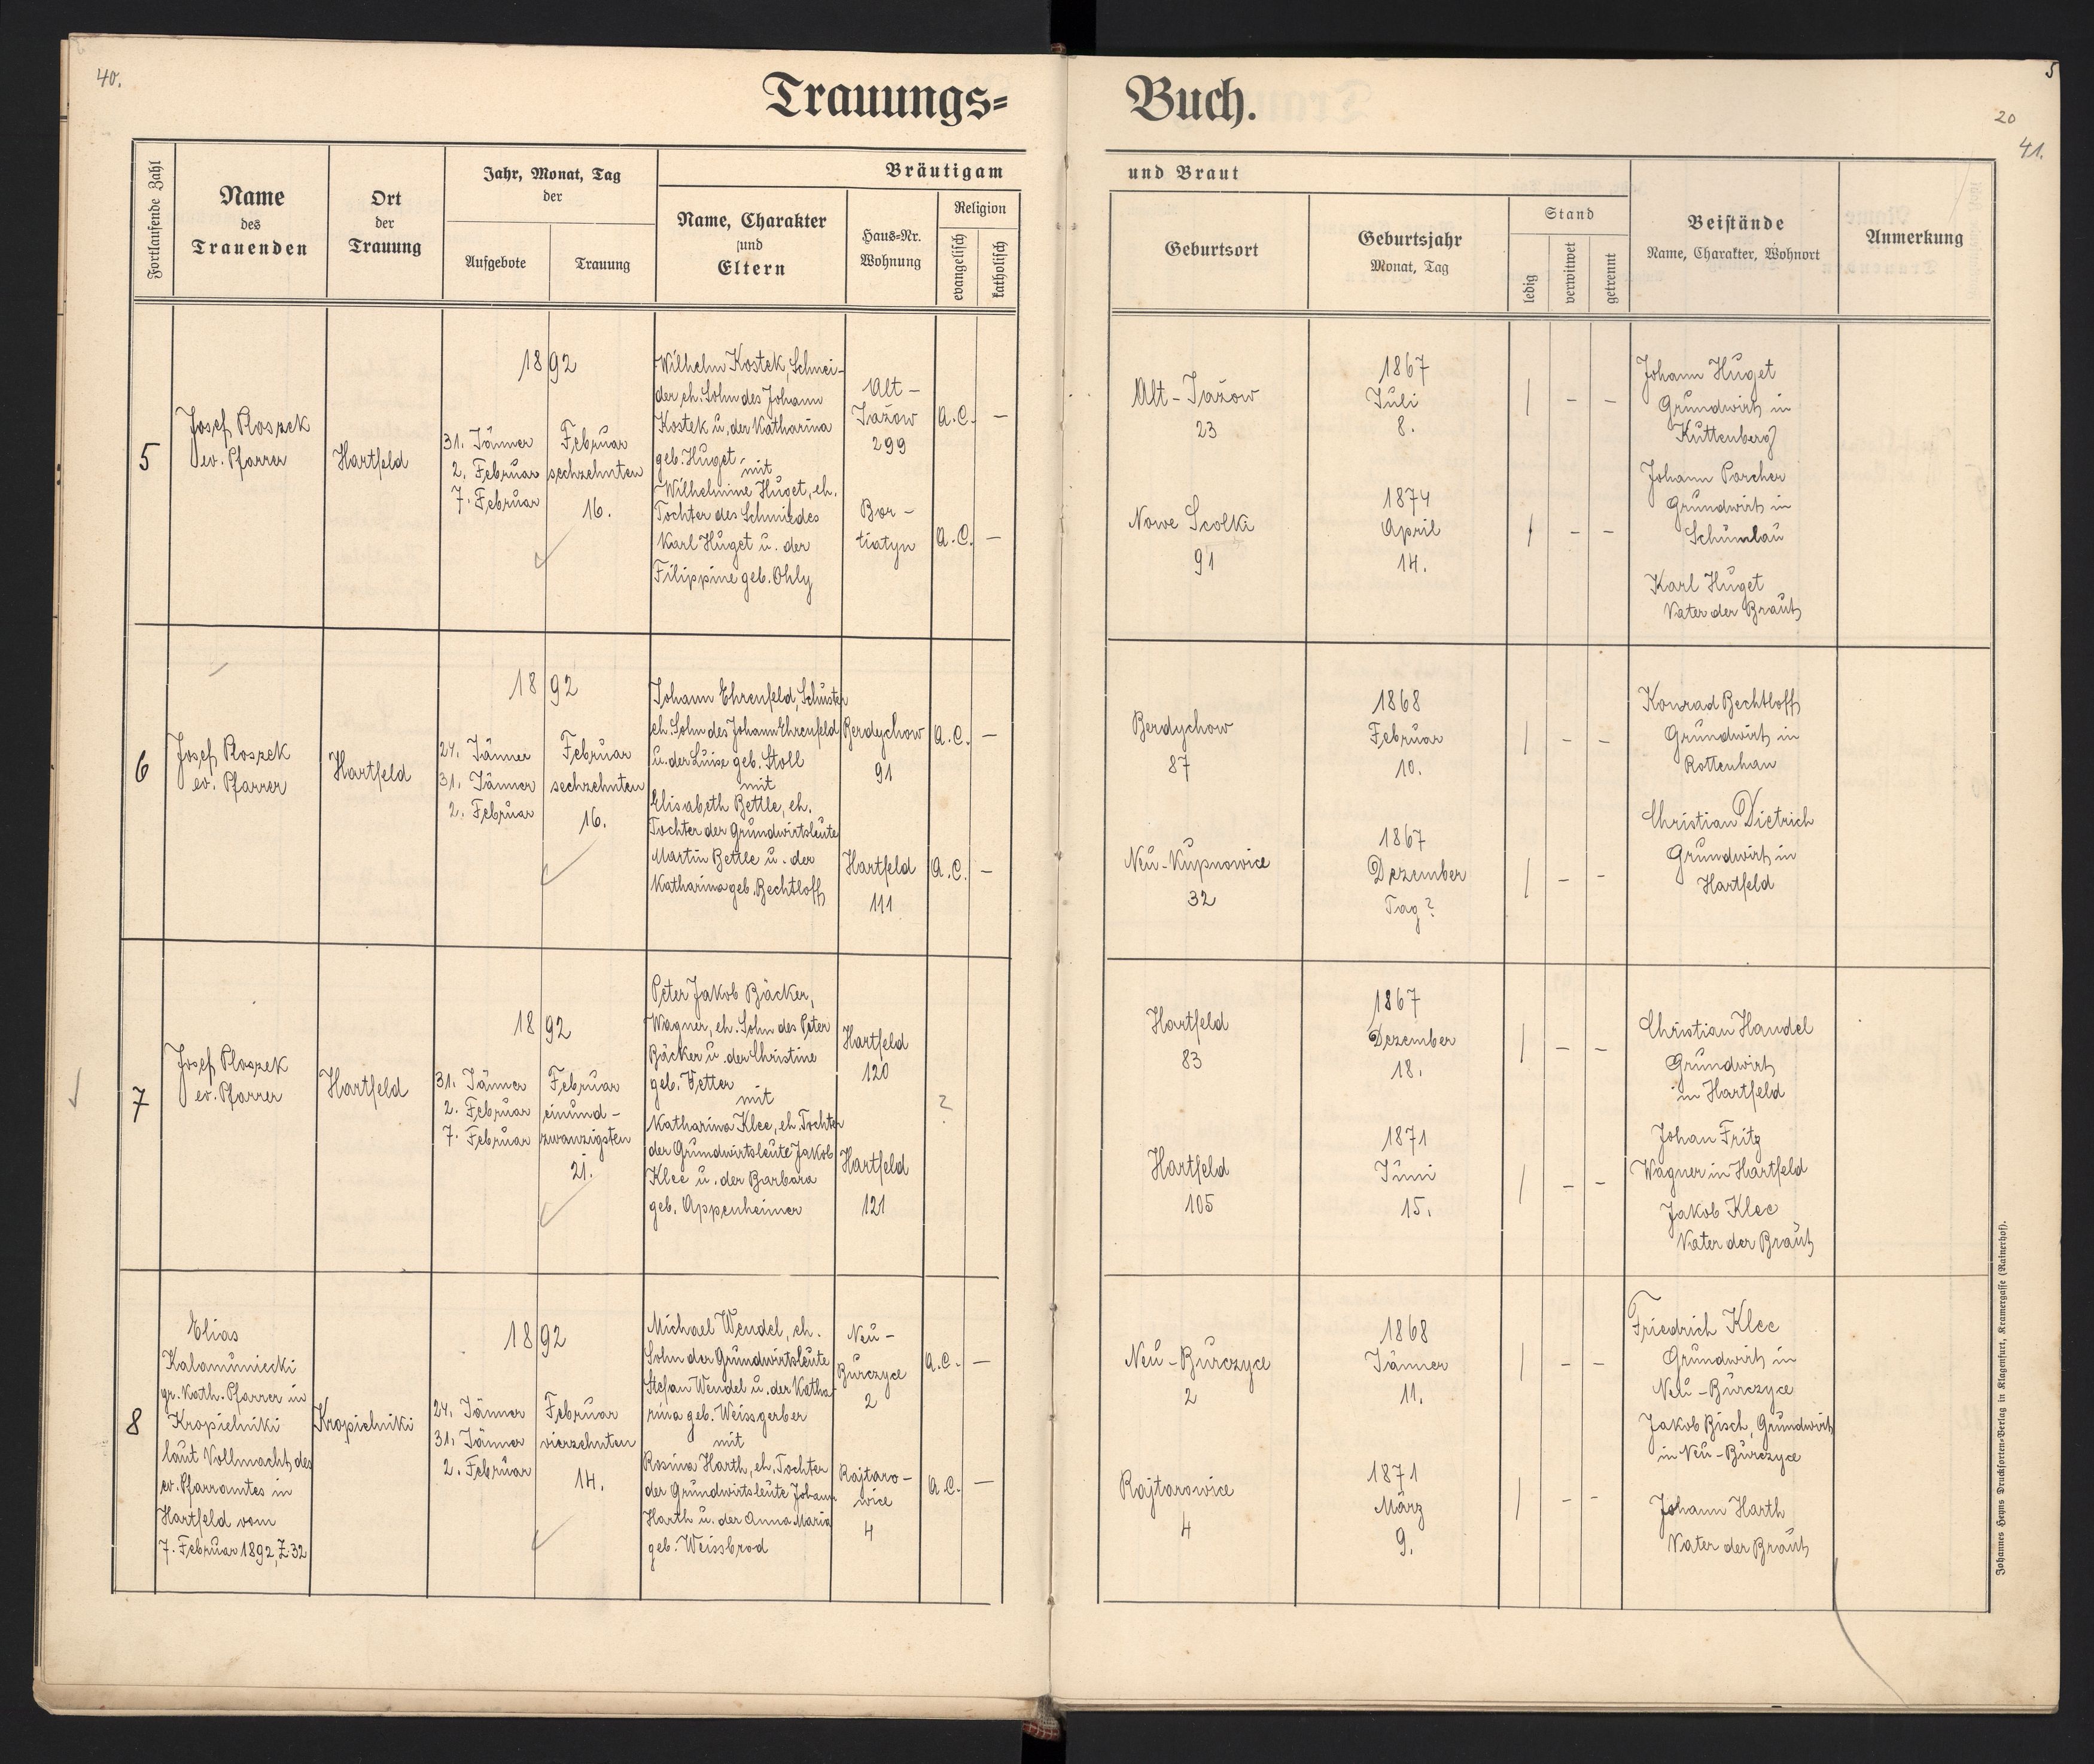 40.
Trauungs=
Fortlaufende Zahl
Name
des
Trauenden
Ort
der
Trauung
Jahr, Monat, Tag
der
Aufgebote
Trauung
Bräutigam
Name, Charakter
und
Eltern
Haus-Nr.
Wohnung
Religion
evangelisch
katholisch
5
Josef Ploszek
ev. Pfarrer
Hartfeld
1892
31. Jänner
2. Februar
7. Februar
Februar
sechzehnten
16.
Wilhelm Kostek, Schnei-
der, eh. Sohn des Johann
Kostek u. der Katharina
geb. Huget
mit
Wilhelmine Huget, eh.
Tochter des Schmiedes
Karl Huget u. der
Filippine geb. Ohly
Alt-
Jazow
299
A.C. –
Bor-
tiatyn
A.C. –
6
Josef Ploszek
ev. Pfarrer
Hartfeld
1892
24. Jänner
31. Jänner
2. Februar
Februar
sechzehnten
16.
Johann Ehrenfeld, Schuster
eh. Sohn des Johann Ehrenfeld
u. der Luise geb. Stoll
mit
Elisabeth Bettle, eh.
Tochter der Grundwirtsleute
Martin Bettle u. der
Katharina geb. Bechtloff
Berdychow
91
A.C. –
Hartfeld
111
A.C. –
7
Josef Ploszek
ev. Pfarrer
Hartfeld
1892
31. Jänner
2. Februar
7. Februar
Februar
einund-
zwanzigsten
21.
Peter Jakob Bäcker,
Wagner, eh. Sohn des Peter
Bäcker u. der Christine
geb. Vetter
mit
Katharina Klee, eh. Tochter
der Grundwirtsleute Jakob
Klee u. der Barbara
geb. Oppenheimer
Hartfeld
120
?
Hartfeld
121
8
Elias
Kalamuniecki
gr. kath. Pfarrer in
Kropielniki
laut Vollmacht des
ev. Pfarramtes in
Hartfeld vom
7. Februar 1892, Z. 32
Kropielniki
1892
24. Jänner
31. Jänner
2. Februar
Februar
vierzehnten
14.
Michael Wendel, eh.
Sohn der Grundwirtsleute
Stefan Wendel u. der Katha-
rina geb. Weissgerber
mit
Rosina Harth, eh. Tochter
der Grundwirtsleute Johann
Harth u. der Anna Maria
geb. Weissbrod
Neu-
Burczyce
2
A.C. –
Rajtaro-
wice
4
A.C. –
Buch.
5
20
41.
und Braut
Geburtsort
Geburtsjahr
Monat, Tag
Stand
ledig
verwitwet
getrennt
Beistände
Name, Charakter, Wohnort
Anmerkung
Alt-Jazow
23
1867
Juli
8.
| – –
Johann Huget
Grundwirth in
Kuttenberg
Johann Porcher
Grundwirth in
Schumlau
Nowe Siolki
91
1874
April
14.
| – –
Karl Huget
Vater der Braut
Berdychow
87
1868
Februar
10.
| – –
Konrad Bechtloff
Grundwirth in
Rottenhan
Neu-Kupnowice
32
1867
Dezember
Tag?
| – –
Christian Dietrich
Grundwirth in
Hartfeld
Hartfeld
83
1867
Dezember
18.
| – –
Christian Handel
Grundwirth
in Hartfeld
Hartfeld
105
1871
Juni
15.
| – –
Johan Fritz
Wagner in Hartfeld
Jakob Klee
Vater der Braut
Neu-Burczyce
2
1868
Jänner
11.
| – –
Friedrich Klee
Grundwirth in
Neu-Burczyce
Jakob Bisch, Grundwirth
in Neu-Burczyce
Rajtarowice
4
1871
März
9.
| – –
Johann Harth
Vater der Braut
Johannes Heyns Drucksorten-Verlag in Klagenfurt, Kramergasse (Rainerhof).